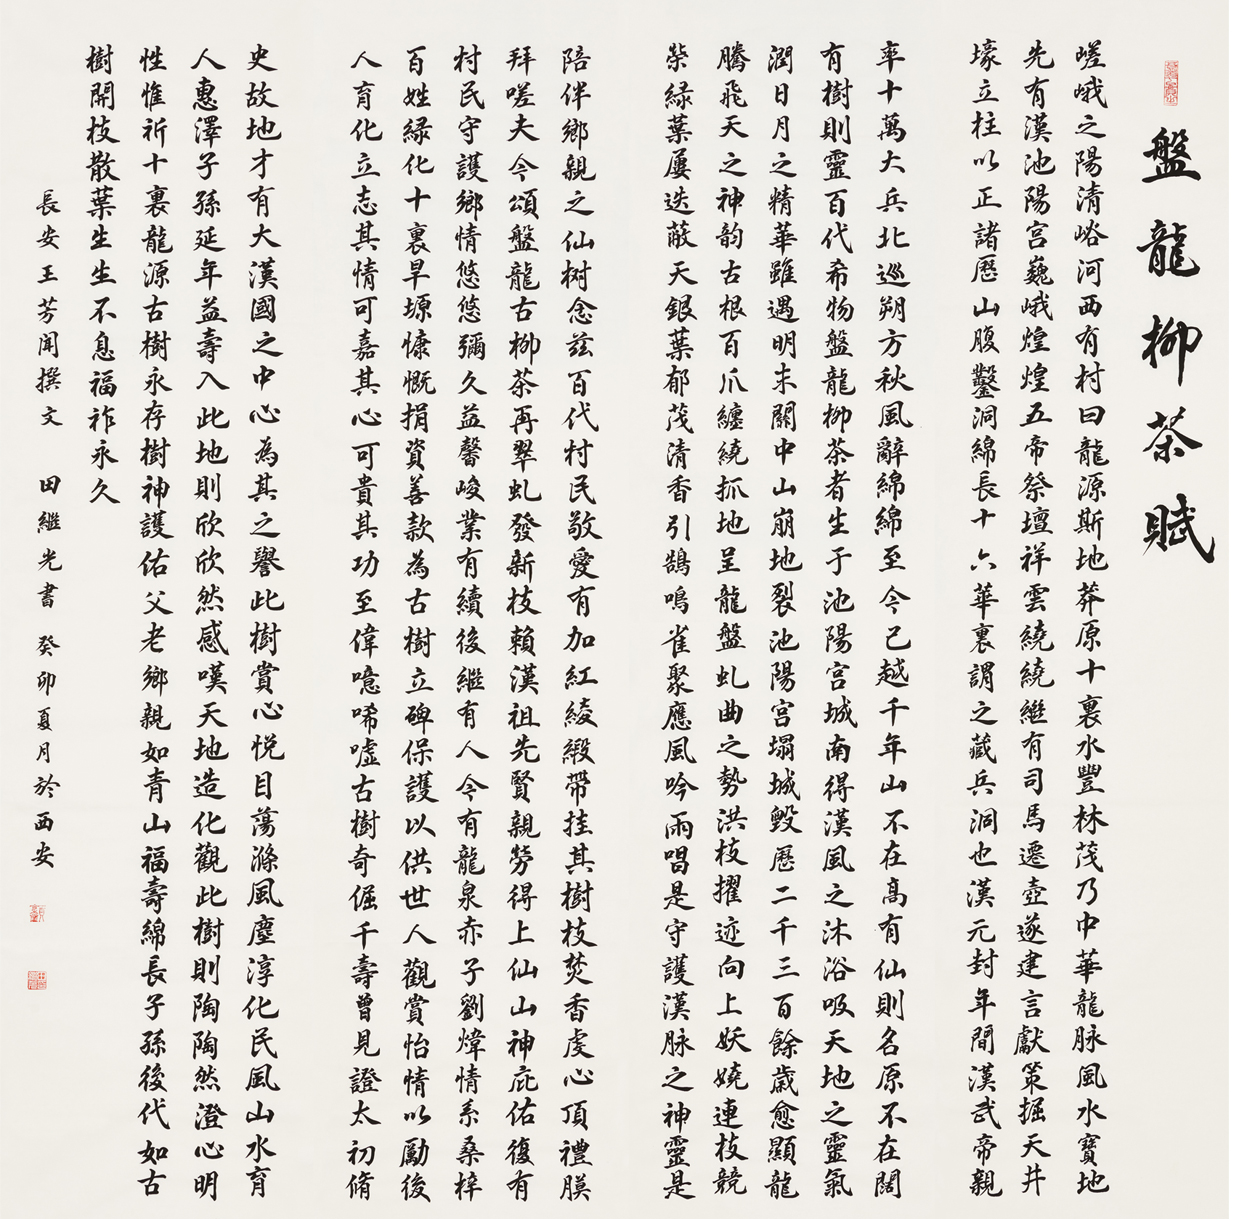 盤龍柳茶賦
嵯峨之陽清峪河西有村曰龍源斯地莽原十裏水豐林茂乃中華龍脉風水寶地
先有漢池陽宫巍峨煌煌五帝祭壇祥雲繞繞繼有司馬遷壺遂建言獻策掘天井
壕立柱以正諸歷山腹鑿洞綿長十六華裏謂之藏兵洞也漢元封年間漢武帝親
率十萬大兵北巡朔方秋風辭綿綿至今已越千年山不在高有仙則名原不在闊
有樹則靈百代希物盤龍柳茶者生于池陽宫城南得漢風之沐浴吸天地之靈氣
潤日月之精華雖遇明末關中山崩地裂池陽宫塌城毁歷二千三百餘歲愈顯龍
騰飛天之神韵古根百爪纏繞抓地呈龍盤虬曲之勢洪枝擢迹向上妖嬈連枝競
榮緑葉屢迭蔽天銀葉郁茂清香引鵠鳴雀聚應風吟雨唱是守護漢脉之神靈是
陪伴鄉親之仙树念兹百代村民敬愛有加紅綾緞帶挂其樹枝焚香虔心頂禮膜
拜嗟夫今頌盤龍古柳茶再翠虬發新枝賴漢祖先賢親勞得上仙山神庇佑復有
村民守護鄉情悠悠彌久益馨峻業有續後繼有人今有龍泉赤子劉煒情系桑梓
百姓緑化十裏旱塬慷慨捐資善款為古樹立碑保護以供世人觀賞怡情以勵後
人育化立志其情可嘉其心可貴其功至偉噫唏嘘古樹奇倔千壽曾見證太初脩
史故地才有大漢國之中心為其之譽此樹賞心悦目蕩滌風塵淳化民風山水育
人惠澤子孫延年益壽入此地則欣欣然感嘆天地造化觀此樹則陶陶然澄心明
性惟祈十裏龍源古樹永存樹神護佑父老鄉親如青山福壽綿長子孫後代如古
樹開枝散葉生生不息福祚永久
長安王芳聞撰文 田繼光書 癸卯夏月於西安